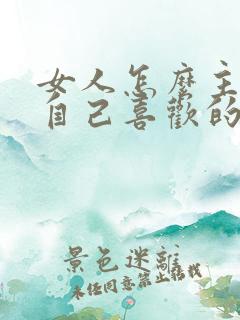 女人怎麼主
自己喜歡的
景色迷離
未经同意禁止搭我